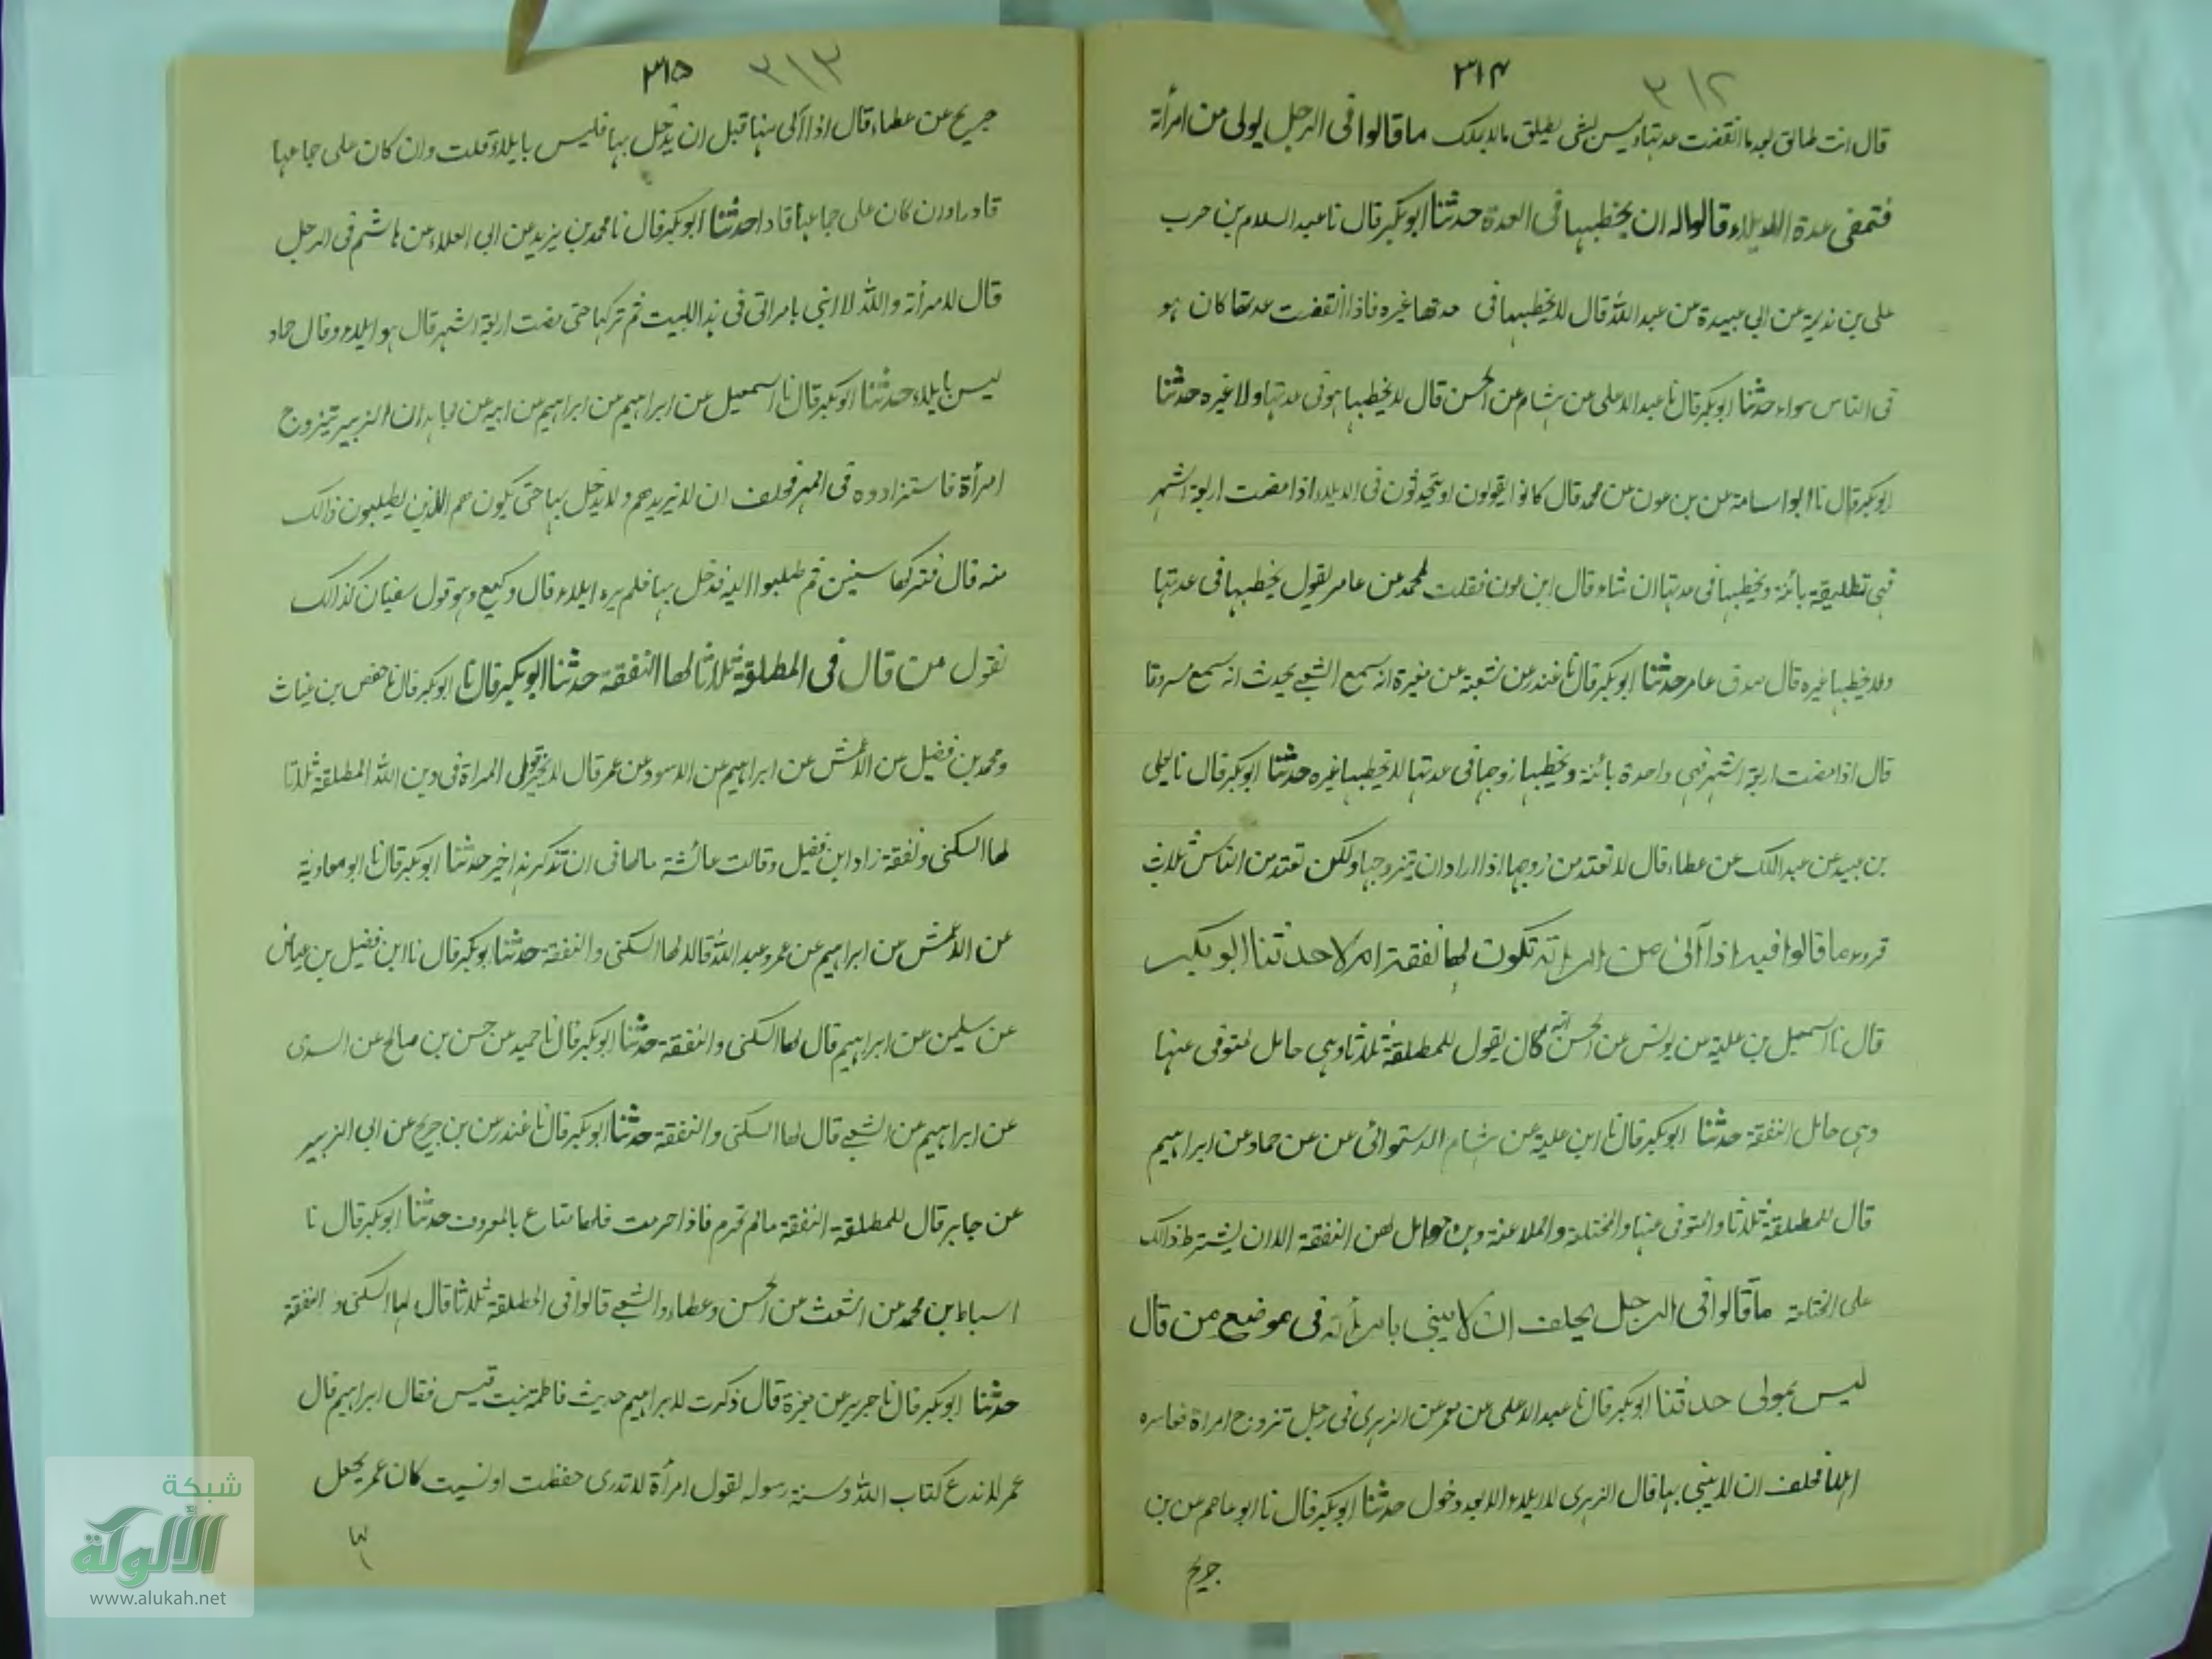 ٣١٤
٣١٢
قال انت طالق بعد ما انقضت عدتها وليس بشى يطلق مالا يملك ما قالوا فى الرجل يولى من امرأته
فتمضى عدة الايلاء قالوا له ان يخطبها فى العدة حدثنا ابو بكر قال نا عبد السلام بن حرب
على بن نديمة عن ابى عبيدة عن عبد الله قال لا يخطبها فى عدتها غيره فاذا انقضت عدتها كان هو
فى الناس سواء حدثنا ابو بكر قال نا عبد الاعلى عن هشام عن الحسن قال لا يخطبها هو فى عدتها ولا غيره حدثنا
ابو بكر قال نا ابو اسامة عن بن عون عن محمد قال كانوا يقولون او يتحدثون فى الايلاء اذا مضت اربعة اشهر
فهى تطليقة بائنة ويخطبها فى عدتها ان شاء قال ابن عون فقلت لمحمد عن عامر يقول يخطبها فى عدتها
ولا يخطبها غيره قال صدق عامر حدثنا ابو بكر قال نا غندر عن شعبة عن مغيرة انه سمع الشعبى يحدث انه سمع مسروقا
قال اذا مضت اربعة اشهر فهى واحدة بائنة ويخطبها زوجها فى عدتها لا يخطبها غيره حدثنا ابو بكر قال نا يعلى
بن عبيد عن عبد الملك عن عطاء قال لا تعتد من زوجها اذا اراد ان يتزوجها ولكن تعتد من الناس ثلاث
قروء ما قالوا فيه اذا آلى من امراته تكون لها نفقة ام لا حدثنا ابو بكر
قال نا اسمعيل بن علية عن يونس عن الحسن انه كان يقول للمطلقة ثلاثا وهى حامل لمتوفى عنها
وهى حامل النفقة حدثنا ابو بكر قال نا ابن علية عن هشام الدستوائى عن عن حماد عن ابراهيم
قال للمطلقة ثلاثا والمتوفى عنها والمختلعة والملاعنة وهن حوامل لهن النفقة الا ان يشترط ذالك
على المختلعة ما قالوا فى الرجل يحلف ان لا يبنى بامرأته فى موضع من قال
ليس بمولى حدثنا ابو بكر قال نا عبد الاعلى عن معمر عن الزهرى فى رجل تزوج امراة فعاسره
اهلها فحلف ان لا يبنى بها قال الزهرى لا ايلاء الا بعد دخول حدثنا ابو بكر قال نا ابو عاصم عن بن
جريج
٣١٥
٣١٣
جريج عن عطاء قال اذا آلى منها قبل ان يدخل بها فليس بايلاء قلت وان كان على جماعها
قادرا وان كان على جماعها قادا حدثنا ابو بكر قال نا محمد بن يزيد عن ابى العلاء عن هاشم فى الرجل
قال لامرأته والله لا ابنى بامراتى فى هذا البيت ثم تركها حتى مضت اربعة اشهر قال هو ايلاء وقال حماد
ليس بايلاء حدثنا ابو بكر قال نا اسمعيل عن ابراهيم عن ابراهيم عن ابيه عن مجاهد ان الزبير تزوج
امرأة فاستزادوه فى المهر فحلف ان لا يزيدهم ولا يدخل بها حتى يكون هم الذين يطلبون ذالك
منه قال فتركها سنين ثم طلبوا اليه فدخل بها فلم يره ايلاء قال وكيع وهو قول سفيان كذالك
نقول من قال فى المطلقة ثلاثا لها النفقة حدثنا ابو بكر قال نا ابو بكر قال نا حفص بن غياث
ومحمد بن فضيل عن الاعمش عن ابراهيم عن الاسود عن عمر قال لا يجوز قول المراة فى دين الله المطلقة ثلاثا
لها السكنى ونفقة زاد ابن فضيل وقالت عائشة مالها فى ان تذكر هذا خير حدثنا ابو بكر قال نا ابو معاوية
عن الاعمش عن ابراهيم عن عمر وعبد الله قالا لها السكنى والنفقة حدثنا ابو بكر قال نا ابن فضيل بن عياض
عن سليمن عن ابراهيم قال لها السكنى والنفقة حدثنا ابو بكر قال نا حميد عن حسن بن صالح عن السدى
عن ابراهيم عن الشعبى قال لها السكنى والنفقة حدثنا ابو بكر قال نا غندر عن بن جريج عن ابى الزبير
عن جابر قال للمطلقة النفقة مالم تحرم فاذا حرمت فلها متاع بالمعروف حدثنا ابو بكر قال نا
اسباط بن محمد عن اشعث عن الحسن وعطاء والشعبى قالوا فى المطلقة ثلاثا قال لها السكنى و النفقة
حدثنا ابو بكر قال نا جرير عن مغيرة قال ذكرت لابراهيم حديث فاطمة بنت قيس فقال ابراهيم قال
عمر لا ندع كتاب الله وسنة رسوله لقول امرأة لا تدرى حفظت او نسيت كان عمر يجعل
لها
شبكة
الألوكة
www.alukah.net